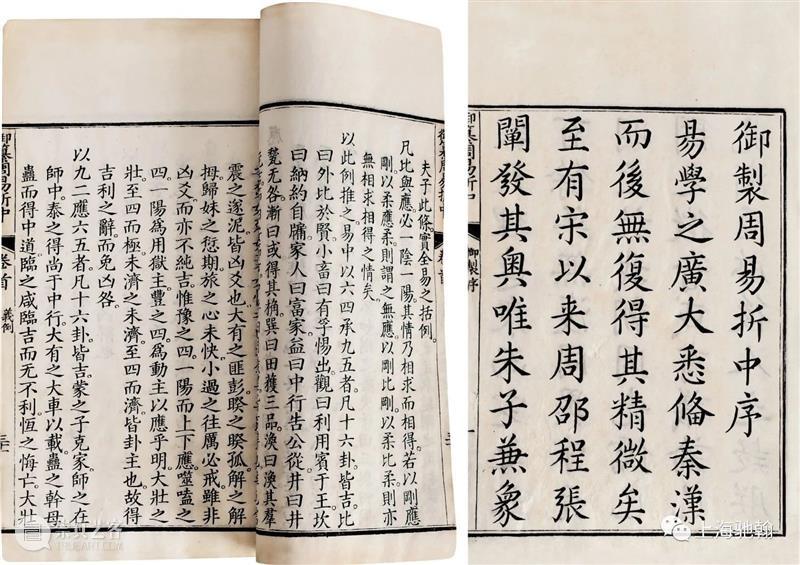 御製周易折中序
易學之廣大悉俻秦漢
而後無復得其精微矣
至有宋以来周邵程張
闡發其奥唯朱子兼象
御製序
夫子此條實全易之括例。
凡比與應必一陰一陽其情乃相求而相得。若以剛應
剛以柔應柔則謂之無應以剛比剛以柔比柔則亦
無相求相得之情矣。
以此例推之易中以六四承九五者凡十六卦皆吉。比
曰外比於賢小畜曰有孚惕出觀曰利用賓于王坎
曰納約自牖家人曰富家益曰中行告公從井曰井
甃无咎漸曰或得其桷巽曰田獲三品渙曰渙其羣
震之遂泥皆凶爻也。大有之匪彭睽之睽孤解之解
拇歸妹之愆期旅之心未快小過之往厲必戒雖非
凶爻而亦不純吉惟豫之四一陽而上下應噬嗑之
四一陽為用獄主豐之四為動主以應乎明大壯之
壯至四而極未濟之未濟至四而濟皆卦主也故得
吉利之辭而免凶咎。
以九二應六五者凡十六卦皆吉。蒙之子克家師之在
師中泰之得尚于中行大有之大車以載蠱之幹母
蠱而得中道臨之咸臨吉而无不利恆之悔亡大壯
御纂周易折中
卷首
義例
上海驰翰